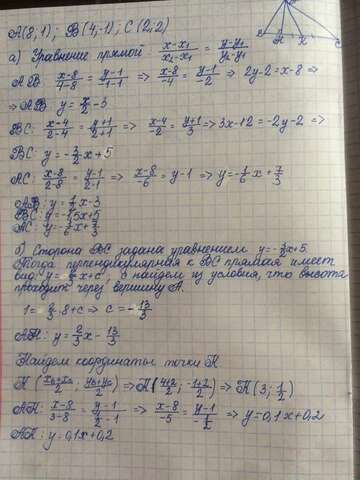 A(8; 1); B(4; -1); C(2; 2)
а) Уравнение прямой (x-x₁)/(x₂-x₁) = (y-y₁)/(y₂-y₁)
AB: (x-8)/(4-8) = (y-1)/(-1-1) => (x-8)/(-4) = (y-1)/(-2) => 2y-2=x-8 =>
=> AB y = x/2 - 3
BC: (x-4)/(2-4) = (y+1)/(2+1) => (x-4)/(-2) = (y+1)/3 => 3x-12=-2y-2 =>
BC: y = -3/2 x + 5
AC: (x-8)/(2-8) = (y-1)/(2-1) => (x-8)/(-6) = y-1 => y = -1/6 x + 7/3
AB: y = 1/2 x - 3
BC: y = -1,5x+5
AC: y = -1/6 x + 7/3
б) Сторона BC задана уравнением y = -3/2 x + 5.
Тогда перпендикулярная к BC прямая имеет
вид: y = 2/3 x + c, c найдем из условия, что высота
проходит через вершину A.
1 = 2/3 · 8 + c => c = -13/3
AH: y = 2/3 x - 13/3
Найдем координаты точки K.
K ((x_B+x_C)/2; (y_B+y_C)/2) => K((4+2)/2; (-1+2)/2) => K(3; 1/2)
AK: (x-8)/(3-8) = (y-1)/(1/2-1) => (x-8)/(-5) = (y-1)/(-1/2) => y=0,1x+0,2
AK: y=0,1x+0,2